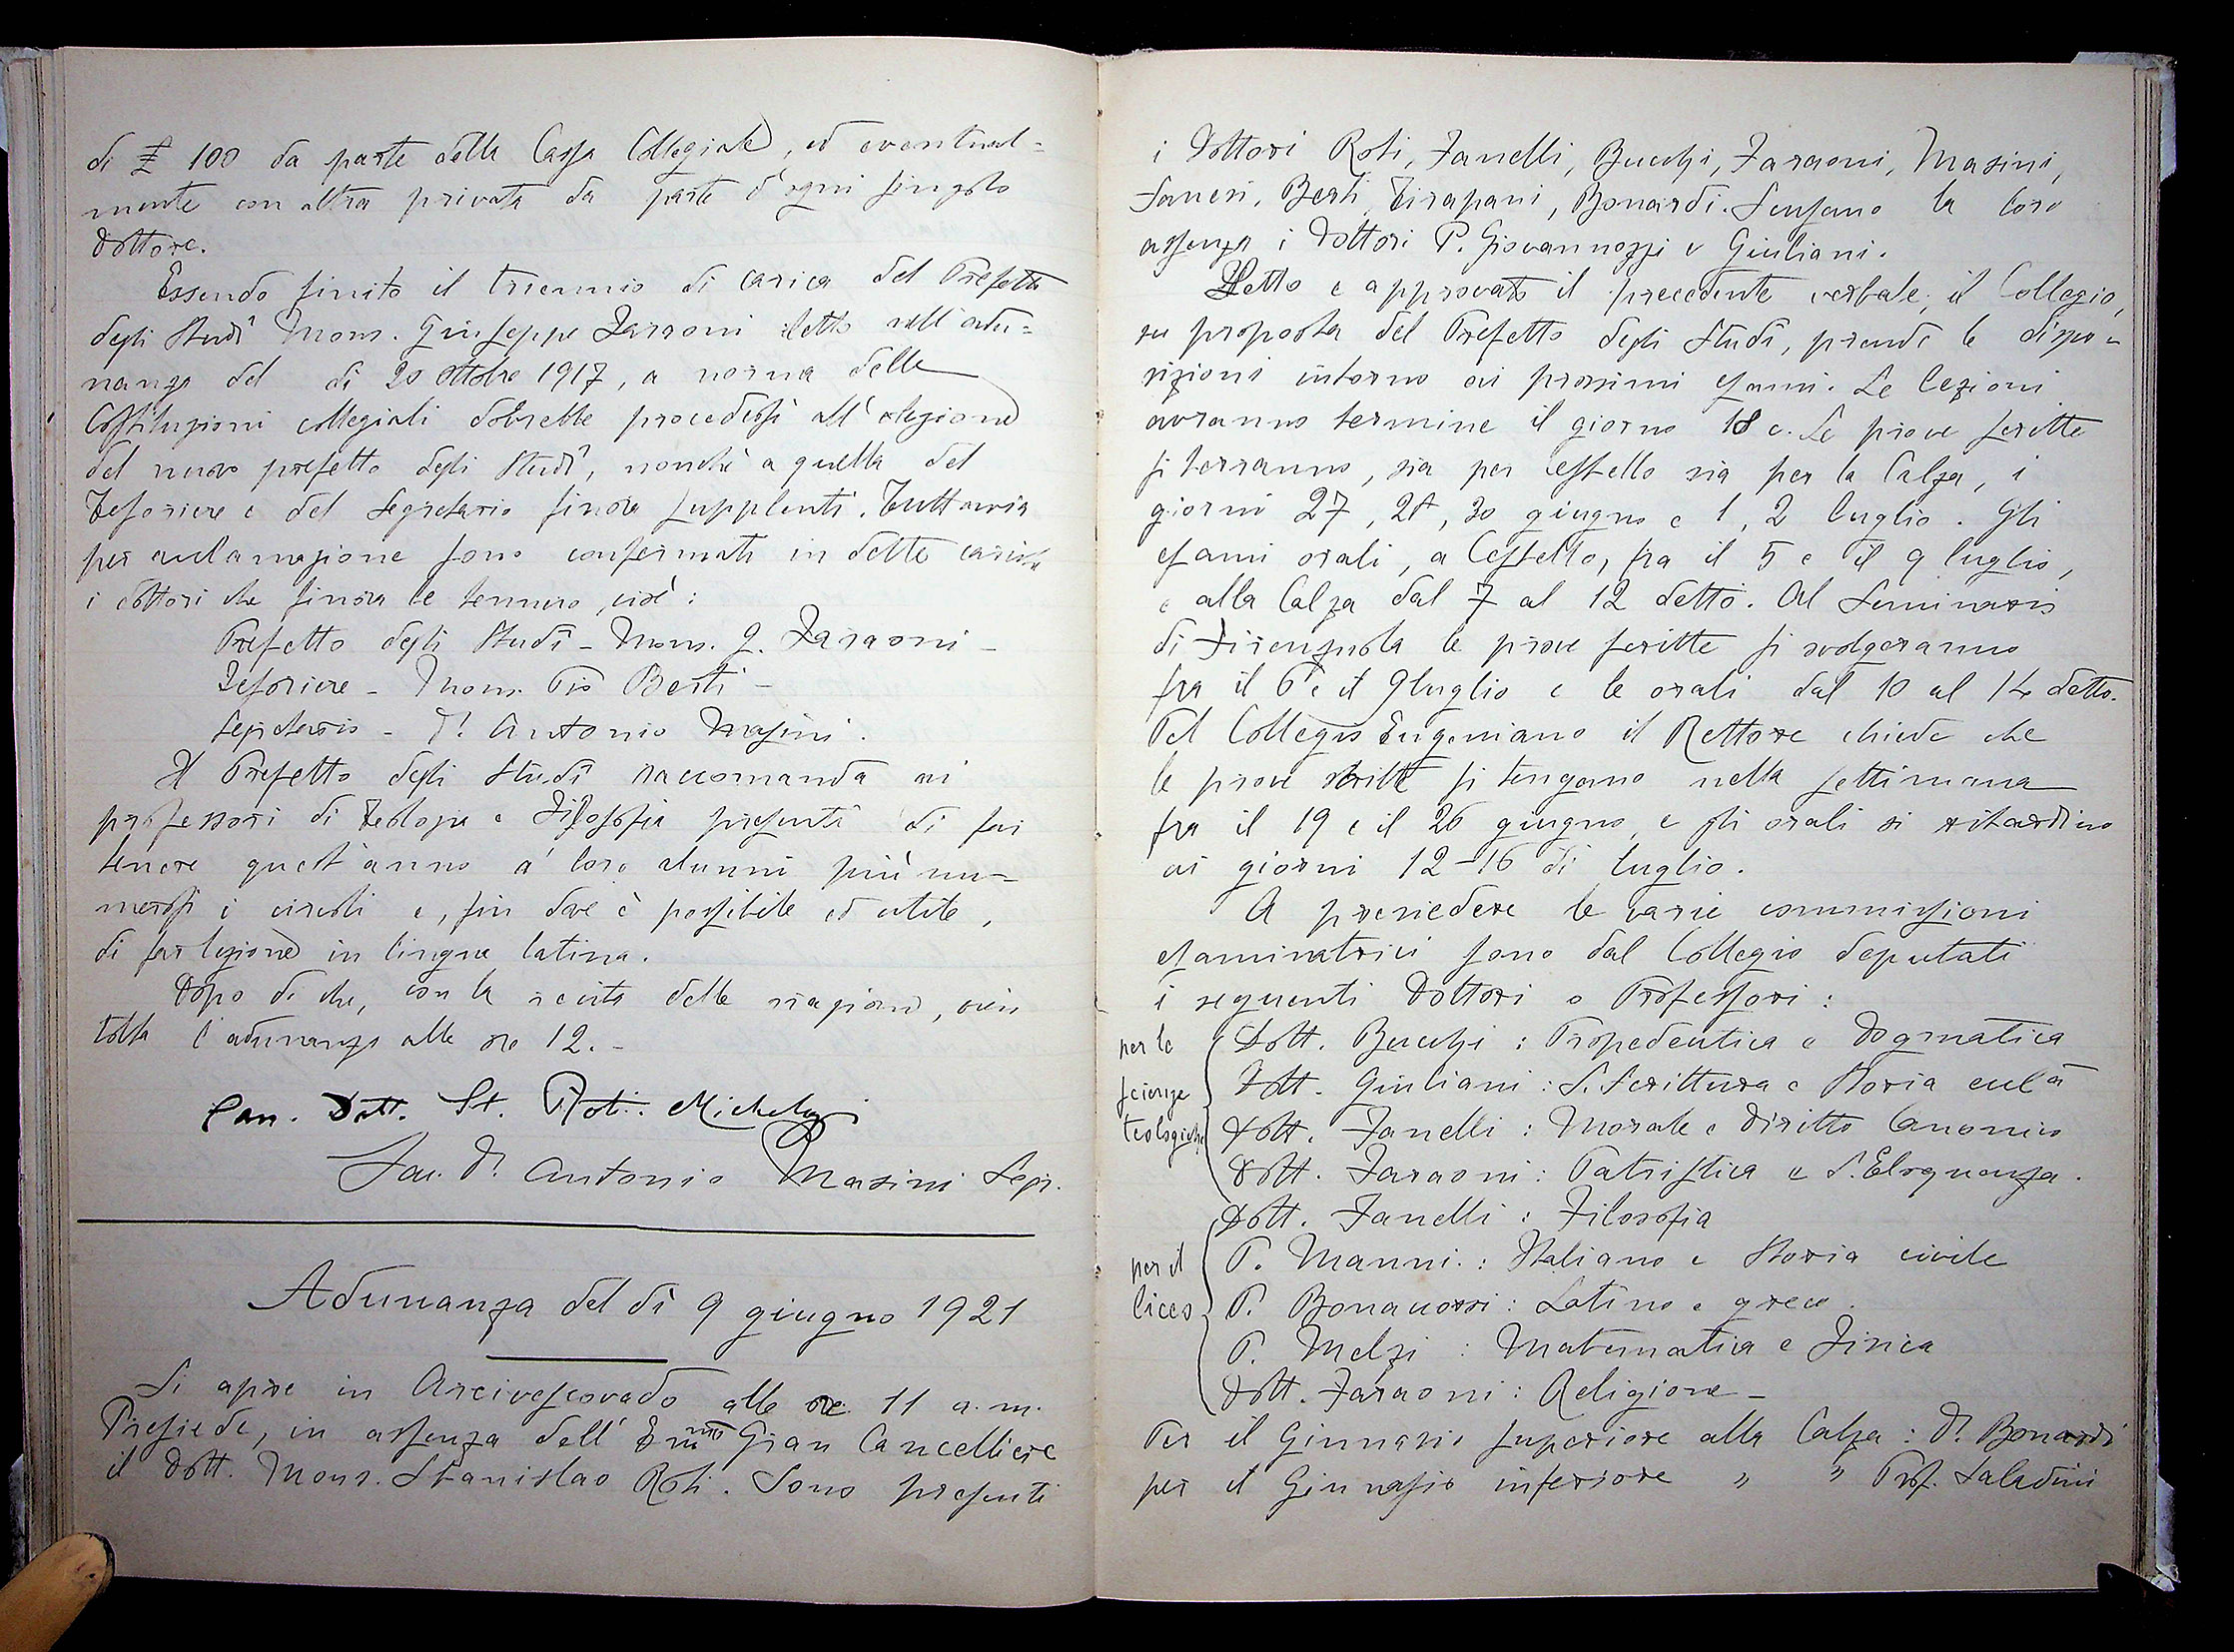 di £ 100 da parte della Cassa Collegiale, ed eventual=
mente con altra privata da parte d'ogni singolo
dottore.
Essendo finito il triennio di carica del Prefetto
degli Studî Mons. Giuseppe Faraoni eletto nell'adu=
nanza del dì 20 ottobre 1917, a norma delle
Costituzioni collegiali dovrebbe procedersi all'elezione
del nuovo prefetto degli Studî, nonchè a quella del
Tesoriere e del Segretario finora supplenti. Tuttavia
per acclamazione sono confermati in dette cariche
i dottori che finora le tennero, cioè:
Prefetto degli Studî - Mons. G. Faraoni -
Tesoriere - Mons. Pio Berti -
Segretario - D.r Antonio Masini.
Il Prefetto degli Studî raccomanda ai
professori di Teologia e Filosofia presenti di far
tenere quest'anno a' loro alunni più nu-
merosi i circoli e, fin dove è possibile ed utile,
di far lezione in lingua latina.
Dopo di che, con la recita delle , vien
tolta l'adunanza alle ore 12. -
Can. Dott. St. Roti. Michelozzi
Sac. D.r Antonio Masini Segr.
Adunanza del dì 9 giugno 1921
Si apre in Arcivescovado alle ore 11 a.m.
Presiede, in assenza dell'Emmo Gran Cancelliere
il Dott. Mons. Stanislao Roti. Sono presenti
i Dottori Roti, Fanelli, Bucchi, Faraoni, Masini,
Saneri, Berti, Tirapani, Bonardi. Scusano la loro
assenza i Dottori P. Giovannozzi e Giuliani.
Letto e approvato il precedente verbale, il Collegio,
su proposta del Prefetto degli Studî, prende le dispo=
sizioni intorno ai prossimi esami. Le lezioni
avranno termine il giorno 18 c. Le prove scritte
si terranno, sia per Cestello sia per la Calza, i
giorni 27, 28, 30 giugno e 1, 2 luglio. Gli
esami orali, a Cestello, fra il 5 e il 9 luglio,
e alla Calza dal 7 al 12 detto. Al Seminario
di Firenzuola le prove scritte si svolgeranno
fra il 6 e il 9 luglio e le orali dal 10 al 14 detto.
Pel Collegio Eugeniano il Rettore chiede che
le prove scritte si tengano nella settimana
fra il 19 e il 26 giugno, e gli orali si ritardino
ai giorni 12-16 di luglio.
A presiedere le varie commissioni
esaminatrici sono dal Collegio deputati
i seguenti Dottori o Professori:
per le scienze teologiche
Dott. Bucchi: Propedeutica e Dogmatica
Dott. Giuliani: S. Scrittura e Storia eccl.a
Dott. Fanelli: Morale e Diritto Canonico
Dott. Faraoni: Patristica e S. Eloquenza.
per il liceo
Dott. Fanelli: Filosofia
P. Manni: Italiano e Storia civile
P. Bonacossi: Latino e greco.
P. Melzi: Matematica e Fisica
Dott. Faraoni: Religione -
Per il Ginnasio superiore alla Calza: D.r Bonardi
per il Ginnasio inferiore " " Prof. Saladini